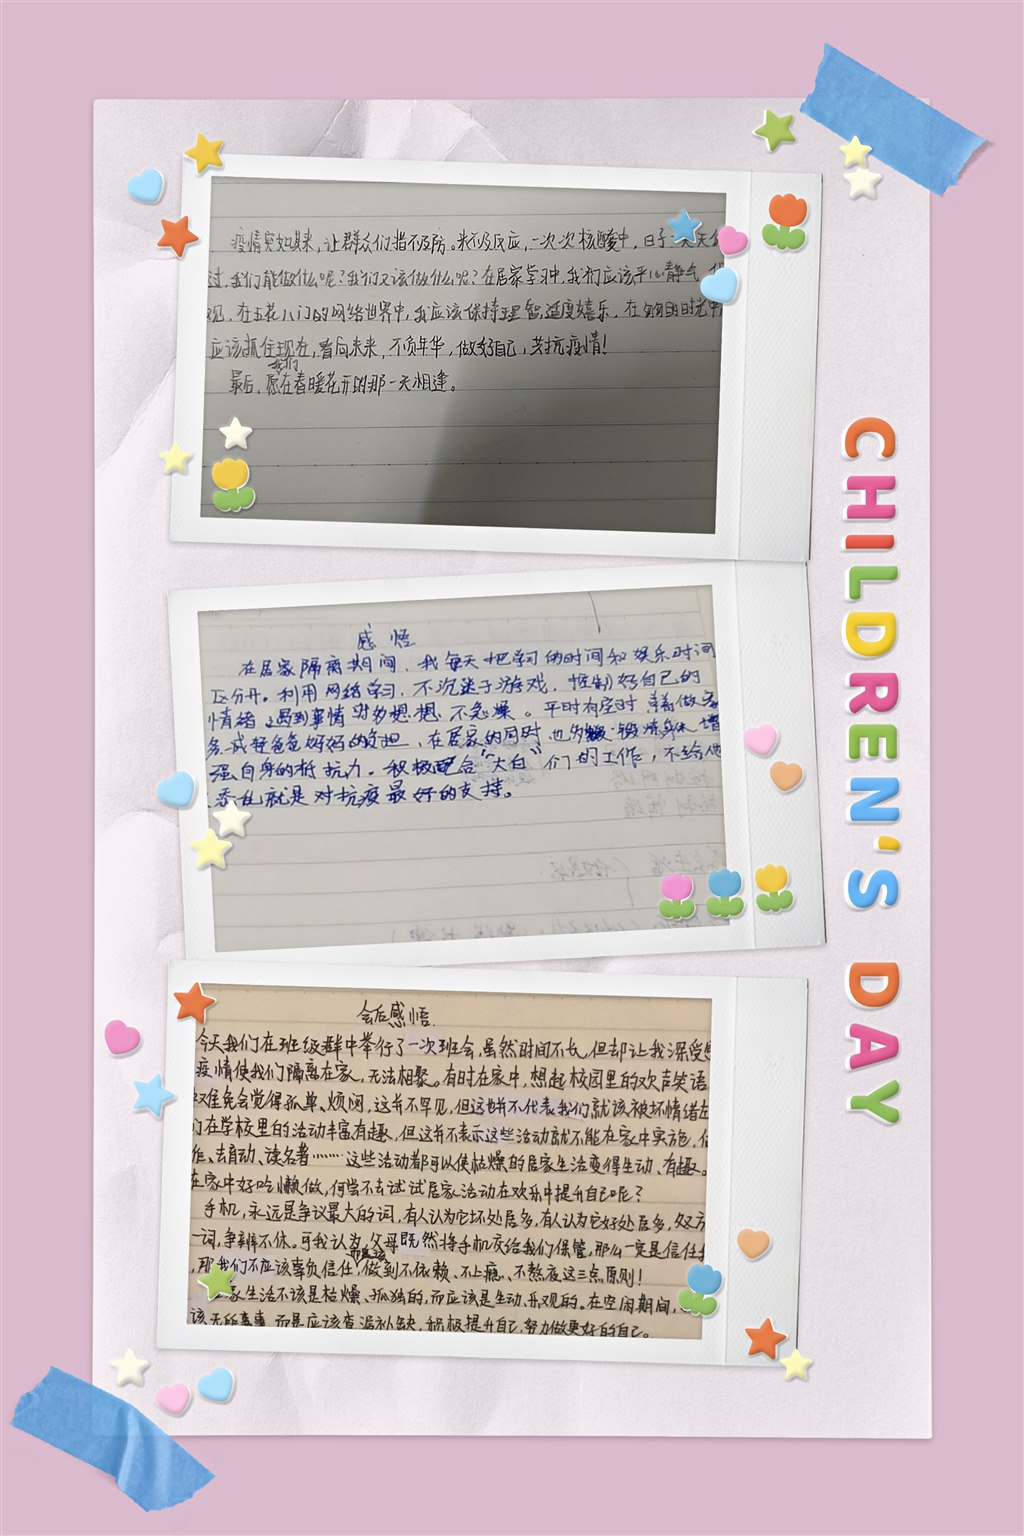 疫情突如其来,让群众们措不及防。来不及反应,一次次核酸中,日子一天天
过,我们能做什么呢?我们又该做什么呢?在居家学习中,我们应该平心静气,
观,在五花八门的网络世界中,我应该保持理智,适度嬉乐,在匆匆的时光中
应该抓住现在,看向未来,不负年华,做好自己,共抗疫情!
我们
最后,愿在春暖花开的那一天相逢。
感悟
在居家隔离期间,我每天把学习的时间和娱乐时间
区分开。利用网络学习,不沉迷于游戏,控制好自己的
情绪,遇到事情多想想,不急燥。平时有空时,帮着做家
务,减轻爸爸妈妈的负担,在居家的同时也多锻炼身体,增
强自身的抵抗力。积极配合“大白”们的工作,不给他
添乱就是对抗疫最好的支持。
会后感悟
今天我们在班级群中举行了一次班会,虽然时间不长,但却让我深受
疫情使我们隔离在家,无法相聚。有时在家中,想起校园里的欢声笑语
难免会觉得孤单、烦闷,这并不罕见,但这并不代表我们就该被坏情绪左
们在学校里的活动丰富有趣,但这并不表示这些活动就不能在家中实施,
作、去自动、读名著……这些活动都可以使枯燥的居家生活变得生动、有趣。
在家中好吃懒做,何尝不去试试居家活动在欢乐中提升自己呢?
手机,永远是争议最大的词,有人认为它坏处居多,有人认为它好处居多,双方
一词,争辨不休。可我认为,父母既然将手机交给我们保管,那么一定是信任
而应该
,那我们不应该辜负信任,做到不依赖、不上瘾、不熬夜这三点原则!
家生活不该是枯燥、孤独的,而应该是生动、乐观的。在空闲期间,
该无所事事,而是应该查漏补缺,积极提升自己,努力做更好的自己。
CHILDREN'S DAY